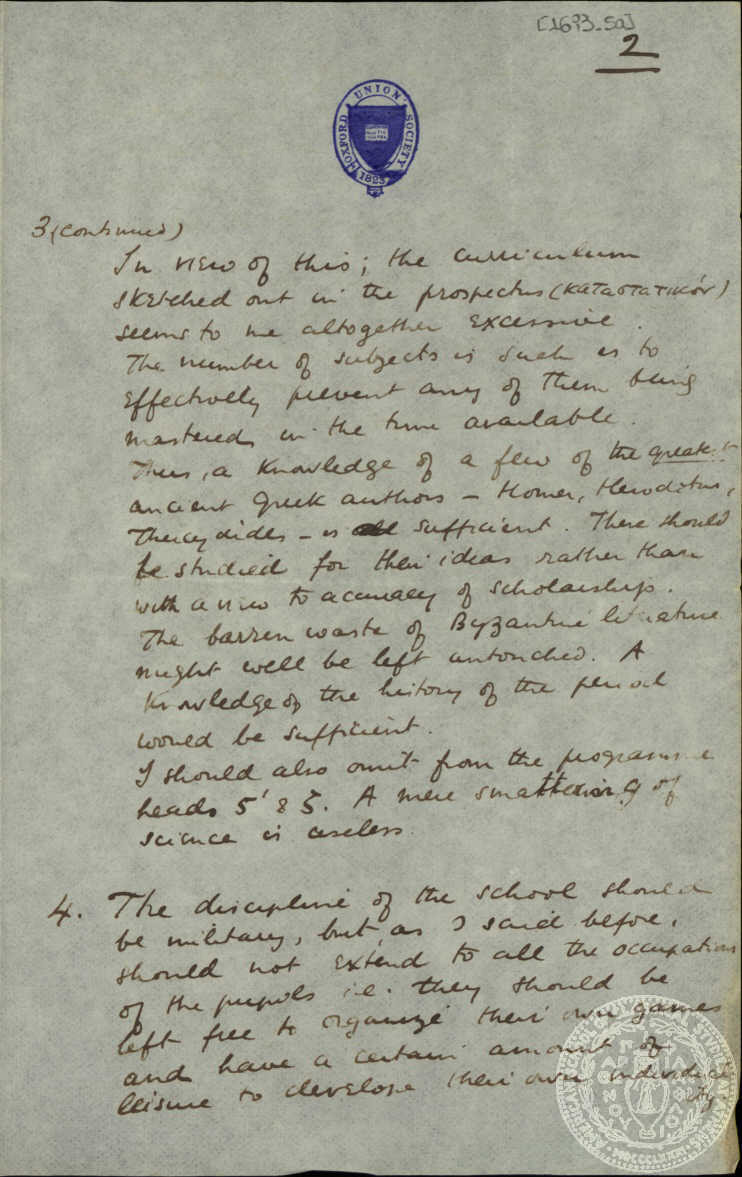 [1693-5a]
2
OXFORD UNION SOCIETY
1823
3 (continued)
In view of this; the curriculum
sketched out in the prospectus (καταστατικόν)
seems to me altogether excessive.
The number of subjects is such as to
effectively prevent any of them being
mastered in the time available.
Thus, a knowledge of a few of the greatest
ancient Greek authors – Homer, Herodotus,
Thucydides – is sufficient. These should
be studied for their ideas rather than
with a view to accuracy of scholarship.
The barren waste of Byzantine literature
might well be left untouched. A
knowledge of the history of the period
would be sufficient.
I should also omit from the programme
heads 5' & ζ. A mere smattering of
science is useless.
4. The discipline of the school should
be military, but, as I said before,
should not extend to all the occupations
of the pupils i.e. they should be
left free to organize their own games
and have a certain amount of
leisure to develope their own individuality.